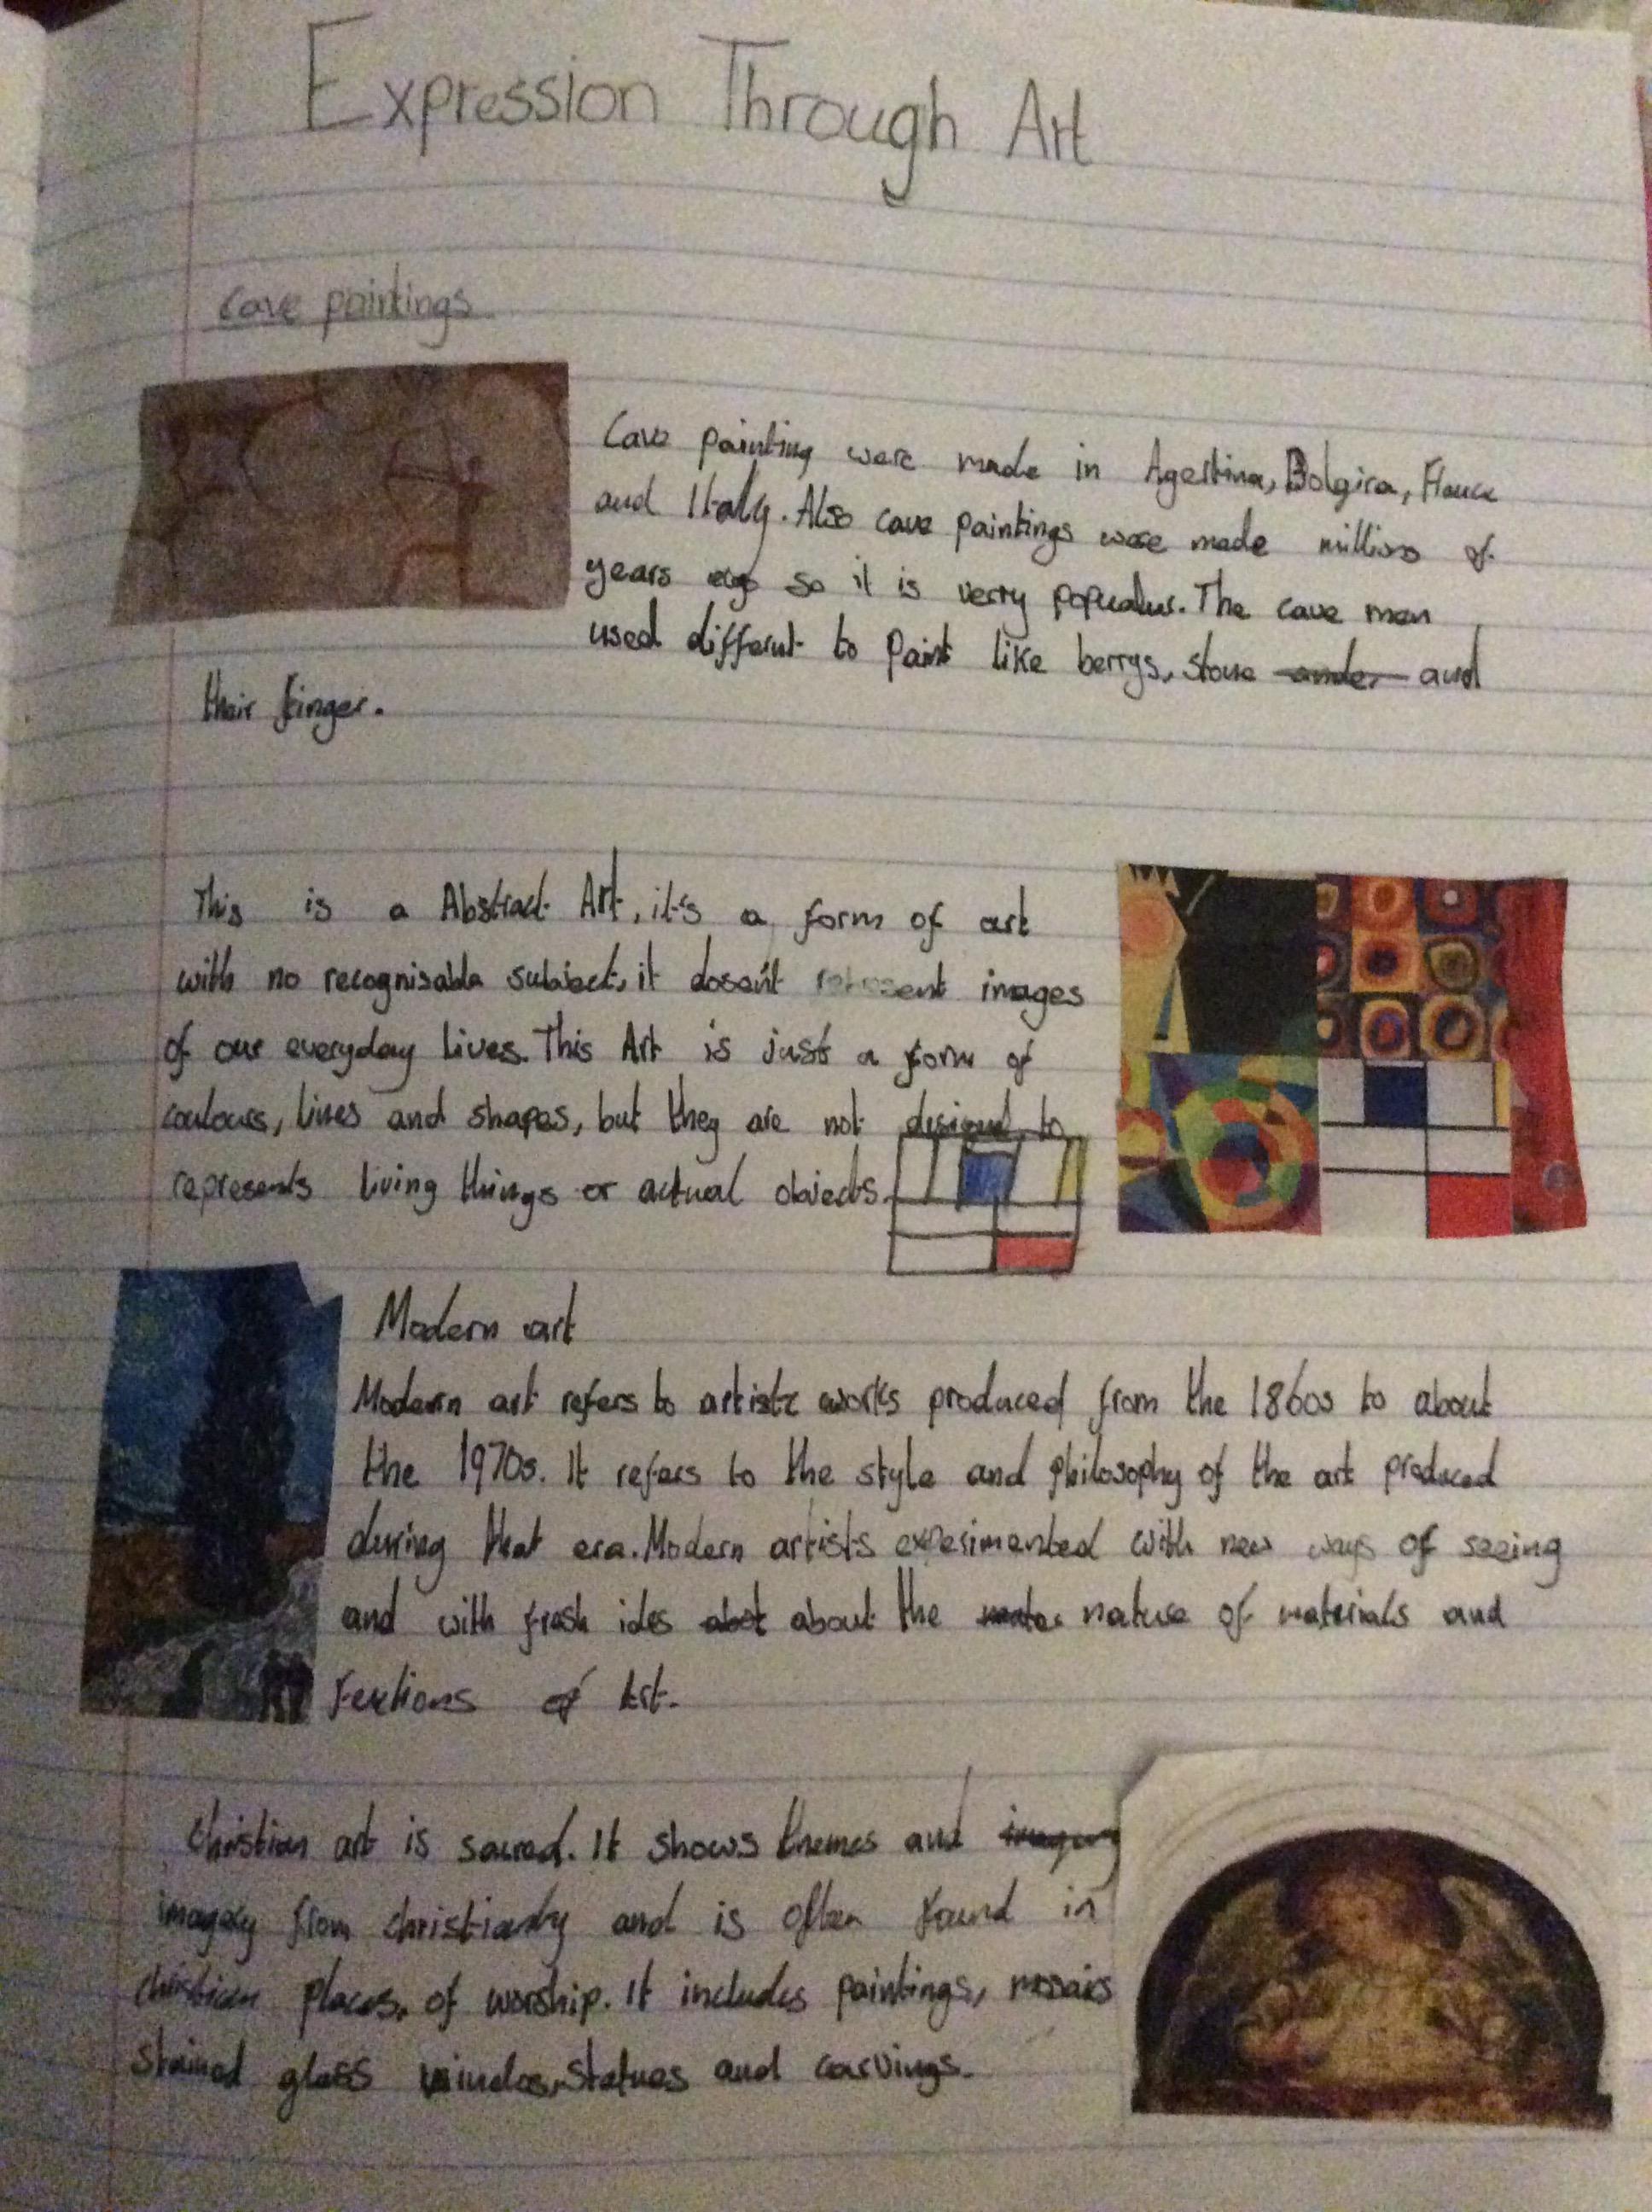 Expression Through Art
Cave paintings
Cave painting were made in Agertina, Bolgira, France
and Italy. Also cave paintings were made millions of
years ago so it is verry populur. The cave men
used differnt to paint like berrys, stone and
their finger.
This is a Abstract Art, it's a form of art
with no recognisable subject, it dosen't represent images
of our everyday lives. This Art is just a form of
coulours, lines and shapes, but they are not to
represents living things or actual objects.
Modern art
Modern art refers to artistc works produced from the 1860s to about
the 1970s. It refers to the style and philosophy of the art produced
during that era. Modern artists experimented with new ways of seeing
and with fresh ides abot about the nature of materials and
of Art.
Christian art is sacred. It shows themes and imagery
imagery from christianty and is often found in
christian places, of worship. It includes paintings, mosaics
stained glass statues and carvings.